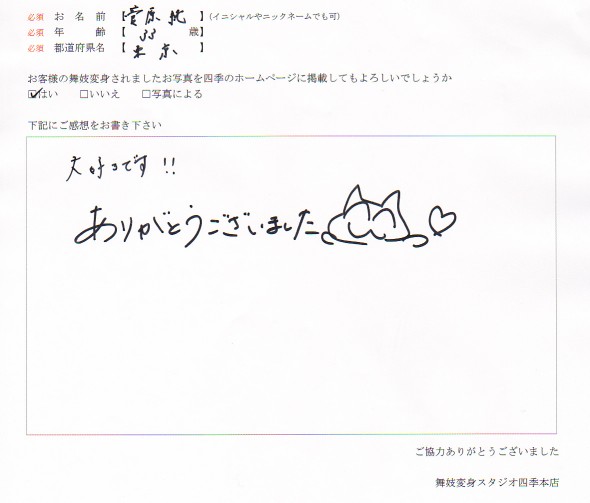 必須 お 名 前 【菅原 純 】(イニシャルやニックネームでも可)
必須 年 齢 【 33 歳】
必須 都道府県名 【 東京 】
お客様の舞妓変身されましたお写真を四季のホームページに掲載してもよろしいでしょうか
☑はい □いいえ □写真による
下記にご感想をお書き下さい
大好きです!!
ありがとうございました
ご協力ありがとうございました
舞妓変身スタジオ四季本店